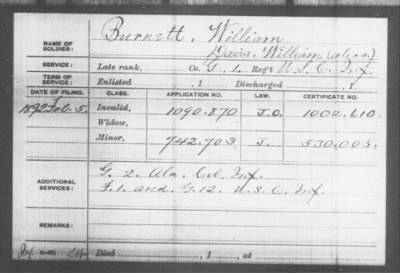 NAME OF SOLDIER: Burnett, William
Davis, William (alias)
SERVICE: Late rank, Co. G, 1 Reg't U.S.C. Inf.
TERM OF SERVICE: Enlisted , 1 Discharged , 1
DATE OF FILING. CLASS. APPLICATION NO. LAW. CERTIFICATE NO.
1892 Feb. 5. Invalid, 1090.870 J.O. 1002.610.
Widow,
Minor, 742.703 J. 530.005.
ADDITIONAL SERVICES: G. 2. Ala. Col. Inf.
F. 1. and G. 12. U.S.C. Inf.
REMARKS:
Died , 1 , at